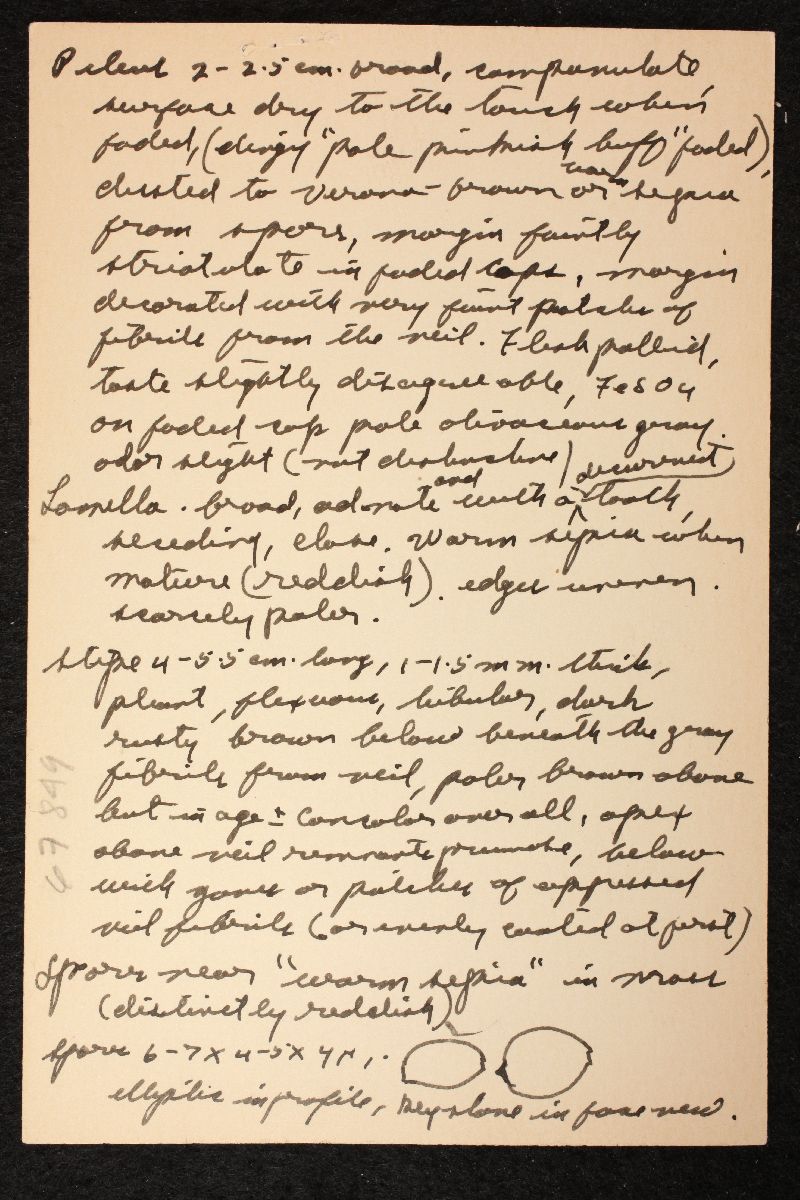 Pileus 2-2.5 cm. broad, campanulate,
surface dry to the touch when
faded, (dingy "pale pinkish buff" faded),
dusted to verona-brown or "warm sepia
from spores, margin faintly
striatulate in faded caps, margin
decorated with very faint patches of
fibrils from the veil. Flesh pallid,
taste slightly disagreeable, FeSO4
on faded cap pale olivaceous gray.
odor slight (not distinctive)
Lamella. broad, adnate and with a decurrent tooth,
seceding, close. Warm sepia when
mature (reddish). edges uneven.
scarcely paler.
Stipe 4-5.5 cm. long, 1-1.5 mm. thick,
pliant, flexuous, tubular, dark
rusty brown below beneath the gray
fibrils from veil, paler brown above
but in age ± concolor over all, apex
above veil remnants pruinose, below
with zones or patches of appressed
veil fibrils (or evenly coated at first)
Spores near "warm sepia" in mass
(distinctly reddish)
Spores 6-7 X 4-5 X 4µ,.
elliptic in profile, in face view.
67899